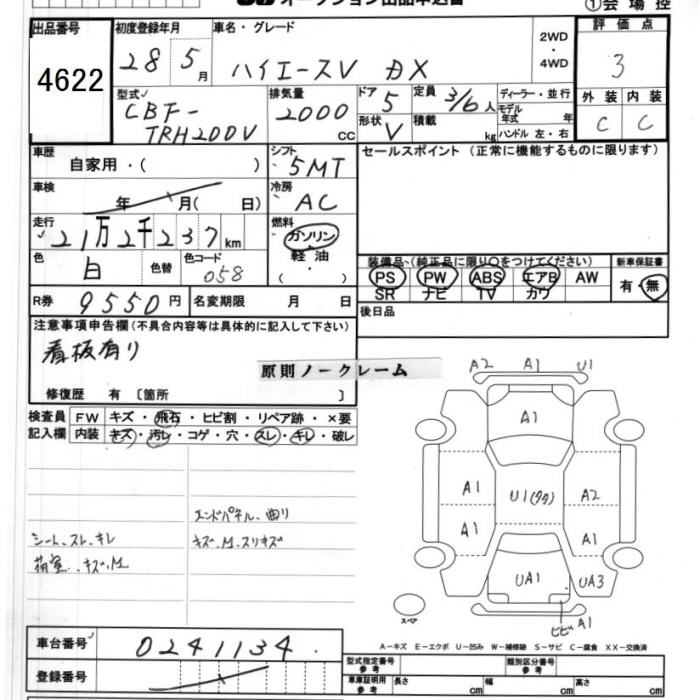 オークション出品申込書
①会場控
出品番号
4622
初度登録年月
28 5月
車名・グレード
ハイエースV DX
2WD
・
4WD
評価点
3
型式
CBF-
TRH200V
排気量
2000
CC
ドア
5
形状
V
定員
3/6人
積載
kg
ディーラー・並行
モデル
年式 年
ハンドル 左・右
外装 内装
C C
車歴
自家用・( )
シフト
5MT
セールスポイント (正常に機能するものに限ります)
車検
年 月( 日)
冷房
AC
走行
21万2千237km
燃料
ガソリン
軽油
・
( )
色
白
色替
色コード
058
装備品(純正品に限り○をつけてください)
PS PW ABS エアB AW
SR ナビ TV カワ
新車保証書
有・無
R券 9550円
名変期限 月 日
後日品
注意事項申告欄(不具合内容等は具体的に記入して下さい)
看板有り
原則ノークレーム
修復歴 有 〔箇所 〕
検査員
記入欄
FW キズ・飛石・ヒビ割・リペア跡・×要
内装 キズ・汚レ・コゲ・穴・スレ・キレ・破レ
A2 A1 U1
A1
A1 U1(タタ) A2
A1 A1
UA1 UA3
ヒビ A1
スペア
エンドパネル、曲り
シート、スレ、キレ
キズ、M、スリキズ
荷室、、キズ、M
A-キズ E-エクボ U-凹み W-補修跡 S-サビ C-腐食 XX-交換済
車台番号 0241134
登録番号
型式指定番号
参考
類別区分番号
参考
車庫証明用
参考
長さ cm
幅 cm
高さ cm